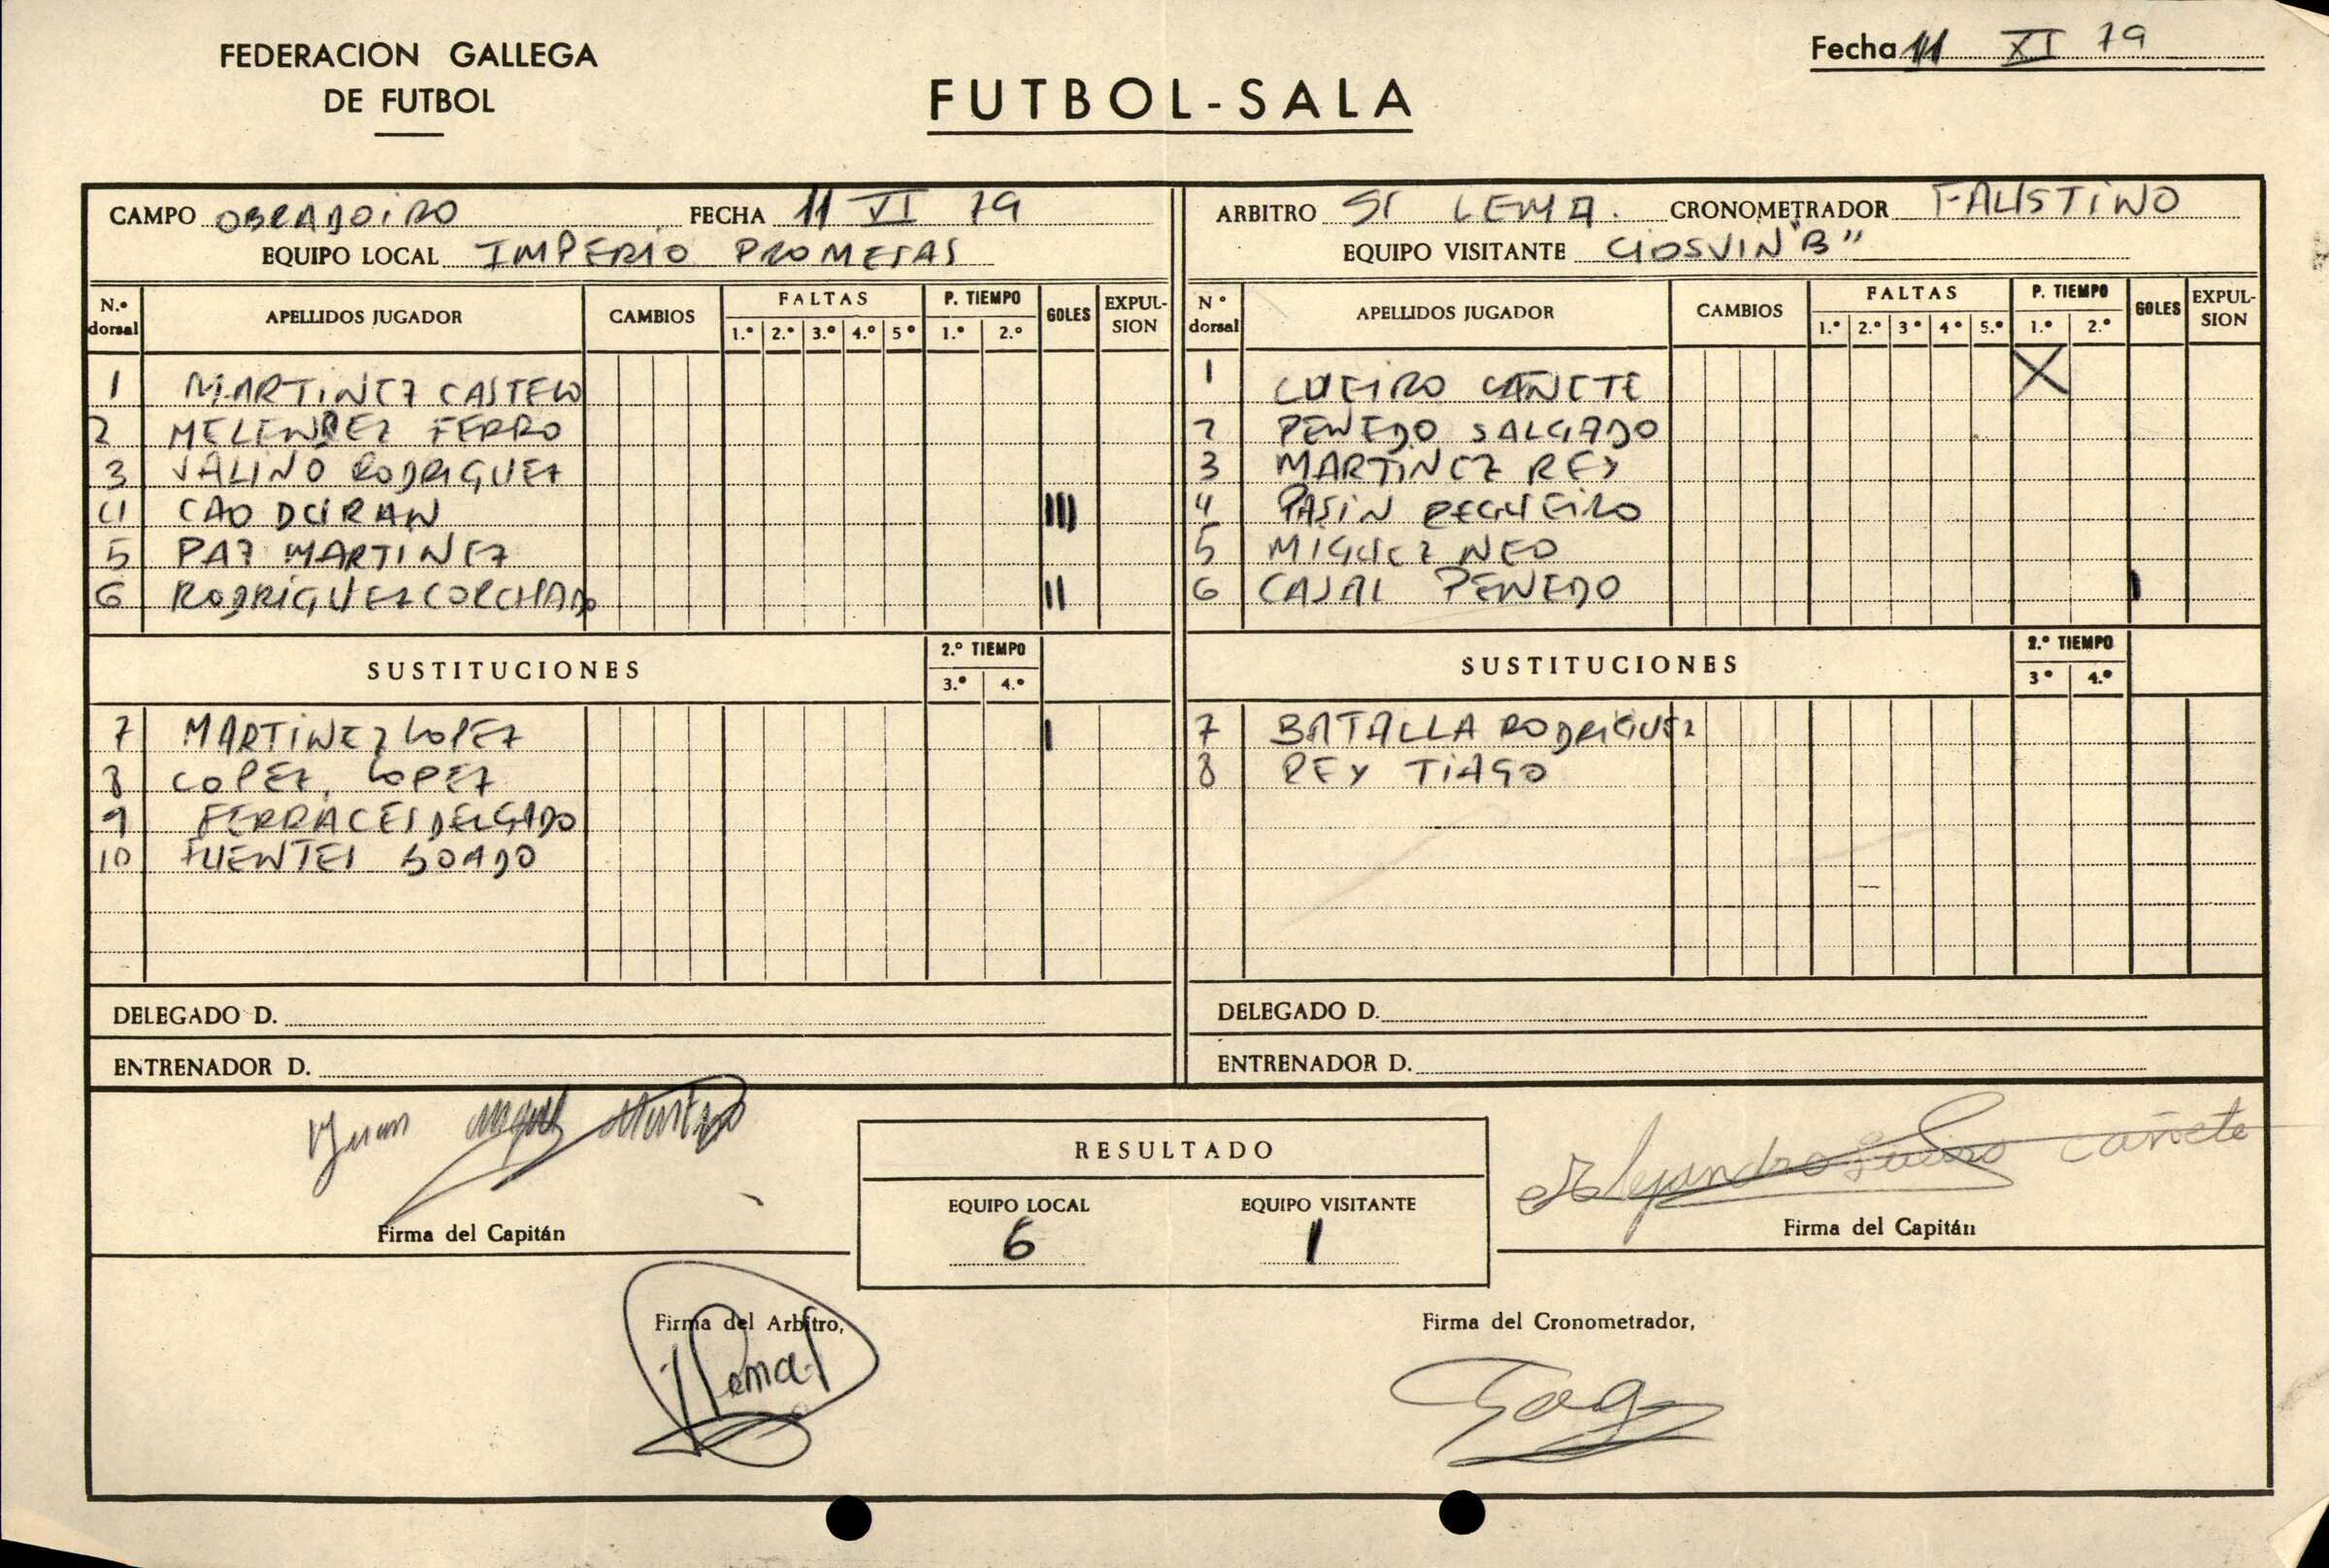 FEDERACION GALLEGA
DE FUTBOL
FUTBOL-SALA
Fecha 11 XI 79
CAMPO OBRADOIRO FECHA 11 VI 79
EQUIPO LOCAL IMPERIO PROMESAS
N.º dorsal APELLIDOS JUGADOR CAMBIOS FALTAS 1.º 2.º 3.º 4.º 5º P. TIEMPO 1.º 2.º GOLES EXPUL-SION
1 MARTINEZ CASTELO
2 MELENDEZ FERRO
3 VALIÑO RODRIGUEZ
4 CAO DURAN III
5 PAZ MARTINEZ
6 RODRIGUEZ CORCHADO II
SUSTITUCIONES 2.º TIEMPO 3.º 4.º
7 MARTINEZ LOPEZ I
8 LOPEZ LOPEZ
9 FERRACES DELGADO
10 FUENTES BOADO
DELEGADO D.
ENTRENADOR D.
ARBITRO Sr LEMA. CRONOMETRADOR FAUSTINO
EQUIPO VISITANTE GIOSVIN "B"
Nº dorsal APELLIDOS JUGADOR CAMBIOS FALTAS 1.º 2.º 3º 4º 5.º P. TIEMPO 1.º 2.º GOLES EXPUL-SION
1 LUEIRO CAÑETE X
2 PENEDO SALGADO
3 MARTINEZ REY
4 PASIN REGUEIRO
5 MIGUEZ NEO
6 CAJAL PENEDO I
SUSTITUCIONES 2.º TIEMPO 3º 4.º
7 BATALLA RODRIGUEZ
8 REY TIAGO
DELEGADO D.
ENTRENADOR D.
Juan Angel Martinez
Firma del Capitán
RESULTADO
EQUIPO LOCAL EQUIPO VISITANTE
6 1
Alejandro Lueiro Cañete
Firma del Capitán
Firma del Arbitro,
Lema
Firma del Cronometrador,